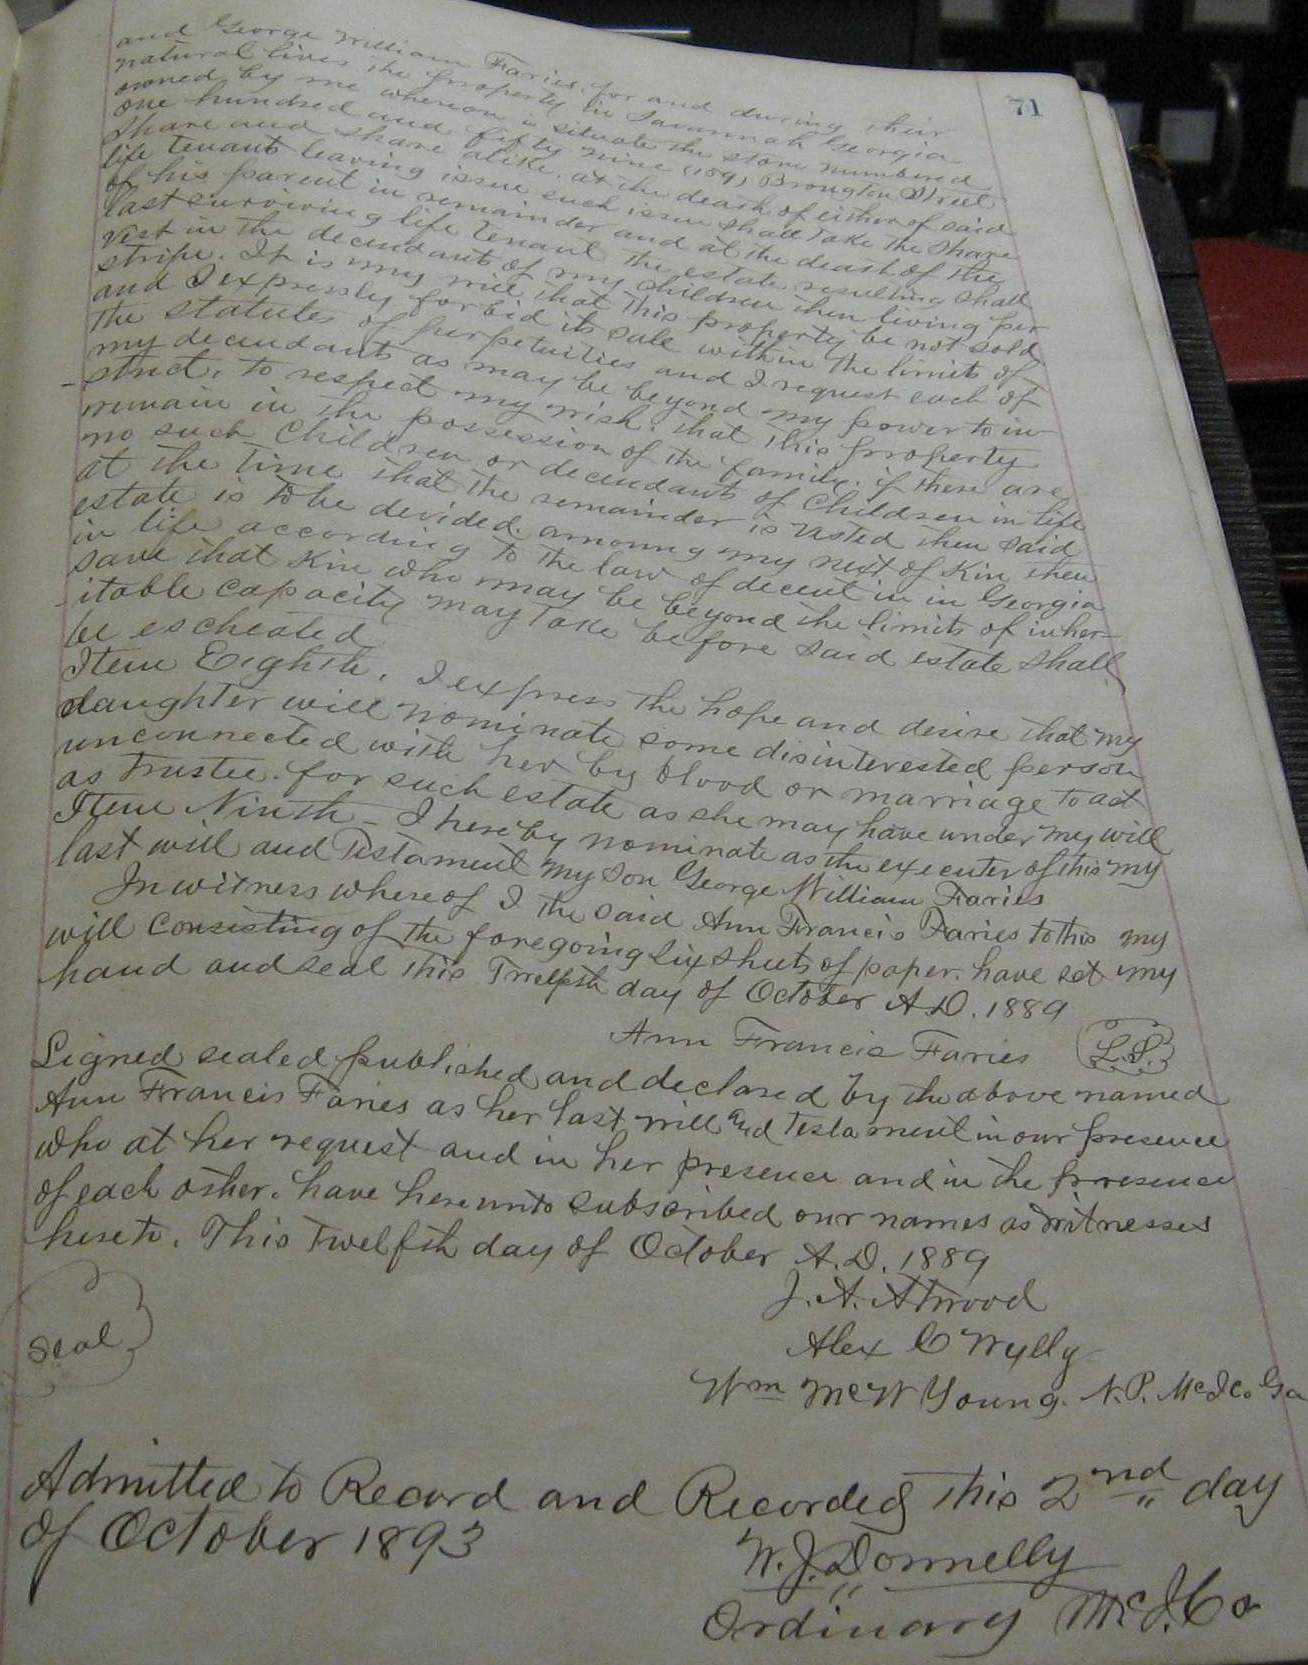 71
and George William Faries, for and during their
natural lives the property in Savannah Georgia
owned by me whereon is situate the store numbered
one hundred and fifty nine (159) Brougton Street
share and share alike. at the death of either of said
life tenants leaving issue such issue shall take the share
of his parent in remainder and at the death of the
last surviving life tenant the estate resulting shall
vest in the decendants of my children then living per
stripe. It is my will that this property be not sold
and I expressly forbid its sale within the limits of
the statutes of perpetuities and I request each of
my decendants as may be beyond my power to in-
-struct, to respect my wish. that this property
remain in the possession of the family. if there are
no such children or decendants of children in life
at the time that the remainder is vested then said
estate is to be divided amoung my next of kin then
in life according to the law of decent in in Georgia
save that kin who may be beyond the limits of inher-
-itable capacity may take before said estate shall
be escheated
Item Eighth, I express the hope and desire that my
daughter will nominate some disinterested person
unconnected with her by blood or marriage to act
as trustee. for such estate as she may have under my will
Item Ninth - I hereby nominate as the executer of this my
last will and Testament my son George William Faries
In witness whereof I the said Ann Francis Faries to this my
will consisting of the foregoing six sheets of paper. have set my
hand and seal this Twelfth day of October A.D. 1889
Ann Francis Faries (L.S.)
Signed sealed published and declared by the above named
Ann Francis Faries as her last will and Testament in our presence
who at her request and in her presence and in the presence
of each other. have hereunto subscribed our names as witnesses
hereto. This twelfth day of October A.D. 1889
J. A. Atwood
Alex C Wylly
Seal
Wm McW Young. N.P. McI Co. Ga
Admitted to Record and Recorded This 2nd day
of October 1893
W. J. Donnelly
Ordinary McI. Co